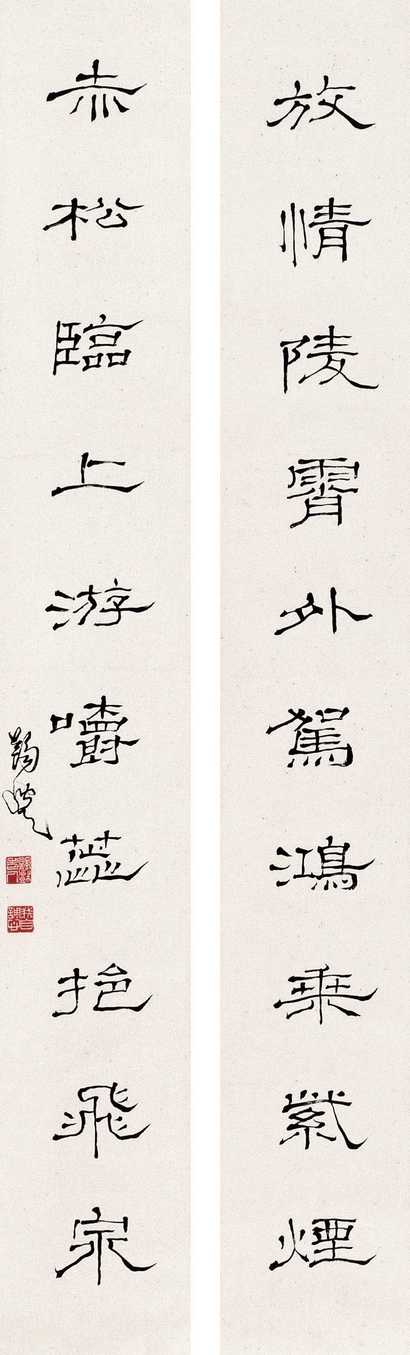 放情陵霄外駕鴻乘紫煙
赤松臨上游嚼蕊挹飛泉